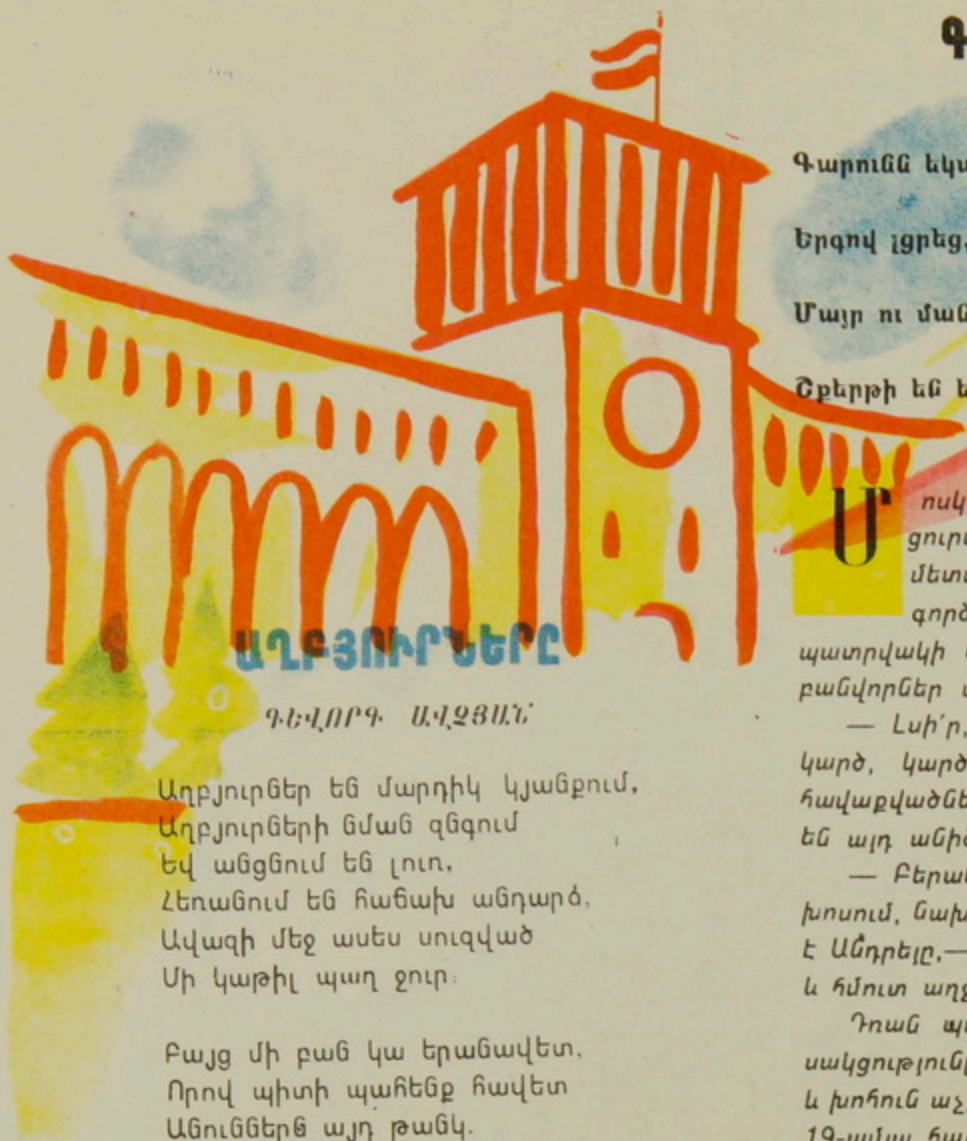 ԱՂԲՅՈՒՐՆԵՐԸ
ԳԵՎՈՐԳ ԱՎՉՅԱՆ
Աղբյուրներ են մարդիկ կյանքում,
Աղբյուրների նման զնգում
Եվ անցնում են լուռ,
Հեռանում են հաճախ անդարձ,
Ավազի մեջ ասես սուզված
Մի կաթիլ պաղ ջուր։
Բայց մի բան կա երանավետ,
Որով պիտի պահենք հավետ
Անուններն այդ թանկ.
Գ
Գարունն եկա
Երգով լցրեց,
Մայր ու ման
Շքերթի են ե
Մ
ոսկ
ցուրտ
մետ
գործ
պատրվակի
բանվորներ
— Լսի՛ր,
կարծ, կարծ
հավաքվածնե
են այդ անի
— Բերան
խոսում, նախ
է Անդրեյը,—
և հմուտ աղջ
Դռան պ
սակցությունը
և խոհուն աչ
19-ամյա հա